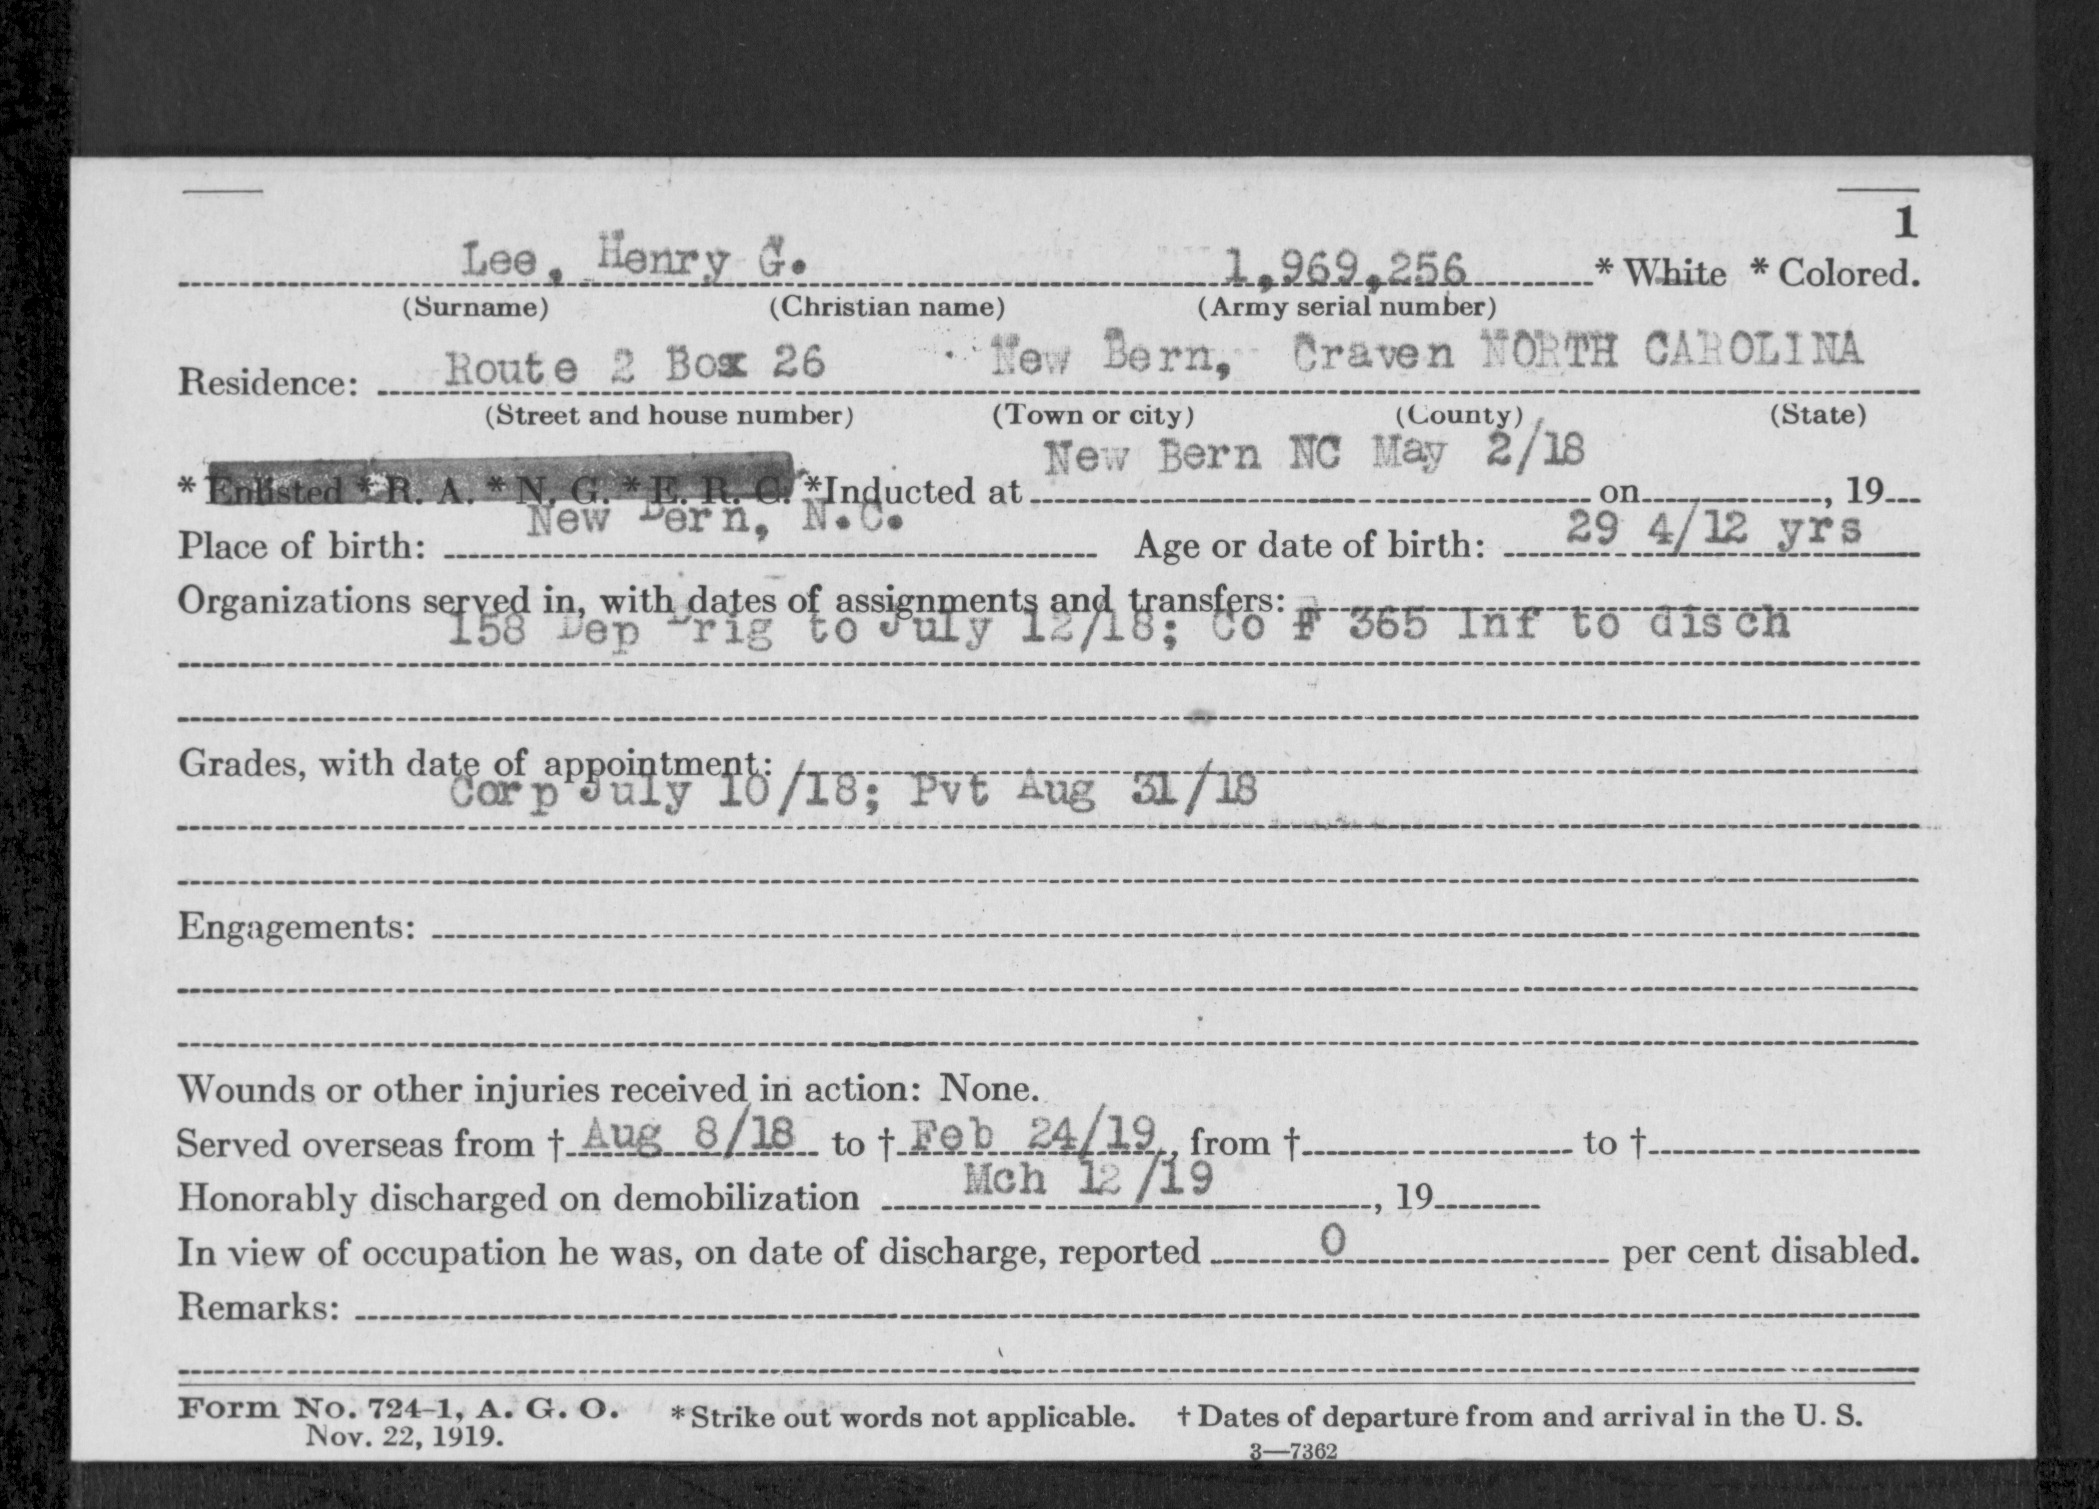 1
Lee, Henry G. 1,969,256 * White * Colored.
(Surname) (Christian name) (Army serial number)
Residence: Route 2 Box 26 New Bern, Craven NORTH CAROLINA
(Street and house number) (Town or city) (County) (State)
New Bern NC May 2/18
* Enlisted * R. A. * N. G. * E. R. C. *Inducted at on , 19
Place of birth: New Bern, N.C. Age or date of birth: 29 4/12 yrs
Organizations served in, with dates of assignments and transfers:
158 Dep Brig to July 12/18; Co F 365 Inf to disch
Grades, with date of appointment:
Corp July 10/18; Pvt Aug 31/18
Engagements:
Wounds or other injuries received in action: None.
Served overseas from † Aug 8/18 to † Feb 24/19, from † to †
Honorably discharged on demobilization Mch 12/19, 19
In view of occupation he was, on date of discharge, reported 0 per cent disabled.
Remarks:
Form No. 724-1, A. G. O. *Strike out words not applicable. † Dates of departure from and arrival in the U. S.
Nov. 22, 1919.
3—7362